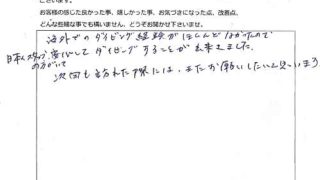 ございます。
お客様の感じた良かった事、嬉しかった事、お気づきになった点、改善点、
どんな些細な事でも構いません、どうぞお聞かせ下さいませ。
海外でのダイビング経験がほとんどなかったので
日本人スタッフの方がいて
安心してダイビングすることが出来ました。
次回も訪れた際には、またお願いしたいと思います